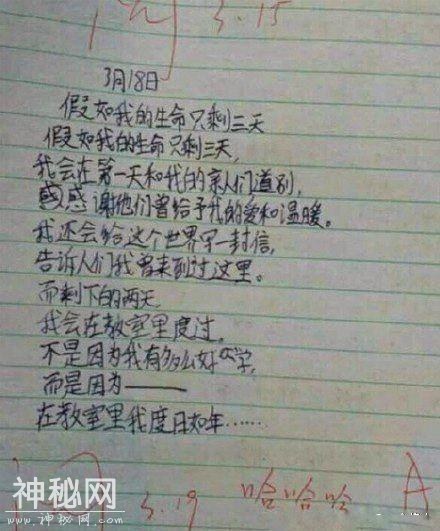 阅 3.15
3月18日
假如我的生命只剩三天
假如我的生命只剩三天,
我会在第一天和我的亲人们道别,
感谢他们曾给予我的爱和温暖。
我还会给这个世界写一封信,
告诉人们我曾来到过这里。
而剩下的两天
我会在教室里度过,
不是因为我有多么好学,
而是因为——
在教室里我度日如年……
阅 3.19 哈哈哈 A
神秘网
www.shenmiw.com